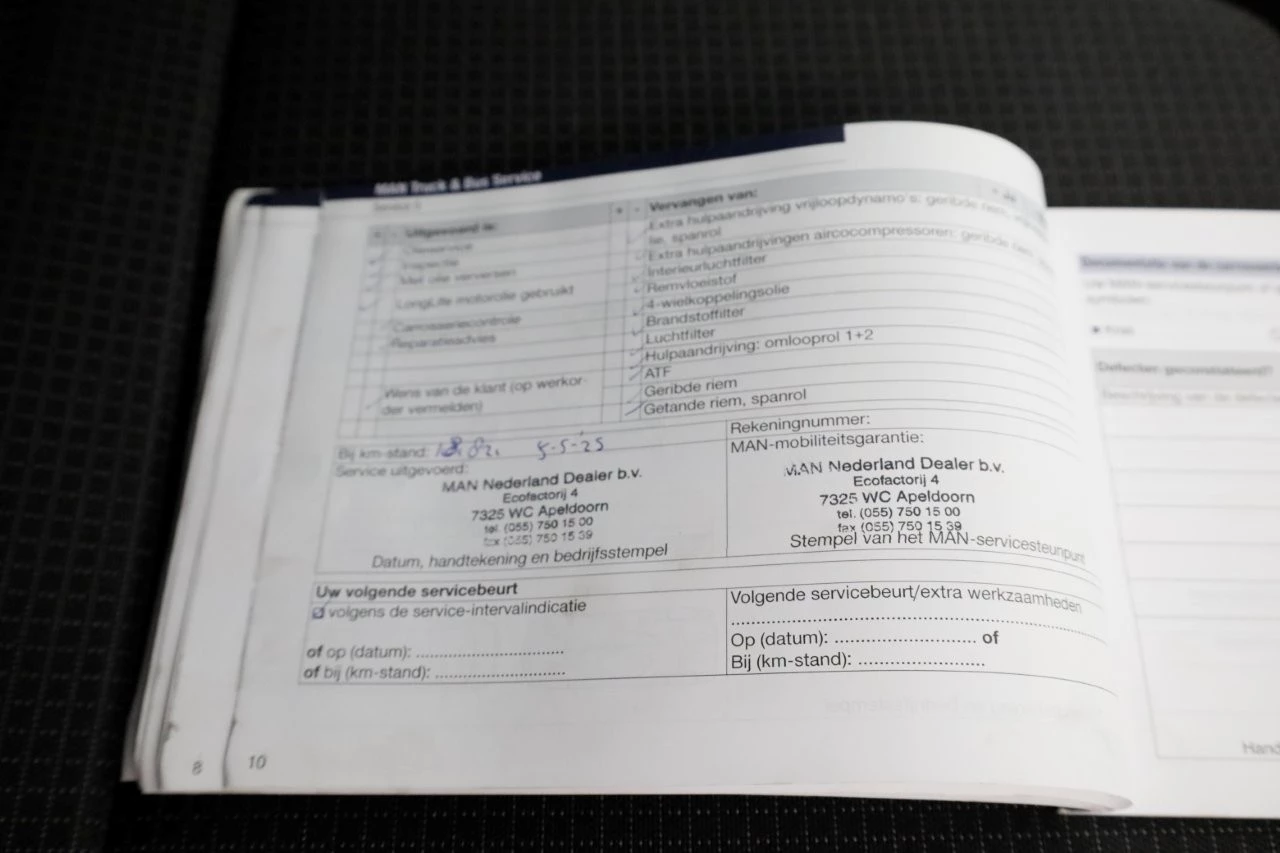 MAN Truck & Bus Service
Uitgevoerd is:
+ - Vervangen van:
Extra hulpaandrijving vrijloopdynamo's: geribde riem,
lie, spanrol
Extra hulpaandrijvingen aircocompressoren: geribde
Inspectie
Interieurluchtfilter
Met olie verversen
Remvloeistof
LongLife motorolie gebruikt
4-wielkoppelingsolie
Brandstoffilter
Carrosseriecontrole
Luchtfilter
Reparatieadvies
Hulpaandrijving: omlooprol 1+2
ATF
Wens van de klant (op werkor-
der vermelden)
Geribde riem
Getande riem, spanrol
Bij km-stand: 5-5-25
Service uitgevoerd:
MAN Nederland Dealer b.v.
Ecofactorij 4
7325 WC Apeldoorn
tel. (055) 750 15 00
fax (055) 750 15 39
Datum, handtekening en bedrijfsstempel
Rekeningnummer:
MAN-mobiliteitsgarantie:
MAN Nederland Dealer b.v.
Ecofactorij 4
7325 WC Apeldoorn
tel. (055) 750 15 00
fax (055) 750 15 39
Stempel van het MAN-servicesteunpunt
Uw volgende servicebeurt
volgens de service-intervalindicatie
of op (datum): ..............................
of bij (km-stand): ..........................
Volgende servicebeurt/extra werkzaamheden
Op (datum): ............................ of
Bij (km-stand): .........................
8
10
Defecten geconstateerd?
Hand